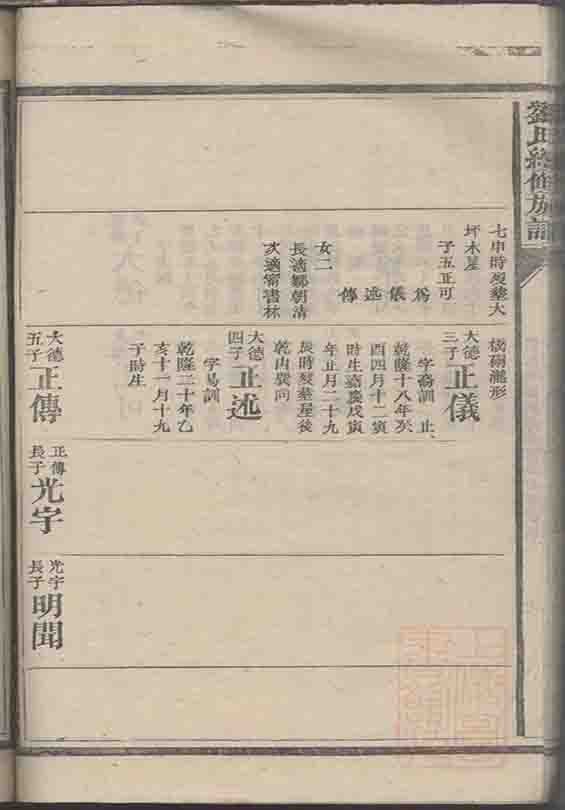 劉氏終修族譜
七申時歿塟大
坪木星
子五正可
為
儀
述
傳
女二
長適鄒朝清
次適甯書林
橫硐瀧形
大德三子正儀
字裔訓 止
乾隆十八年癸
酉四月十二寅
時生嘉慶戊寅
年正月二十九
辰時歿塟屋後
乾山巽向
大德四子正述
字易訓
乾隆二十年乙
亥十一月十九
子時生
大德五子正傳
正傳長子光宇
光宇長子明聞